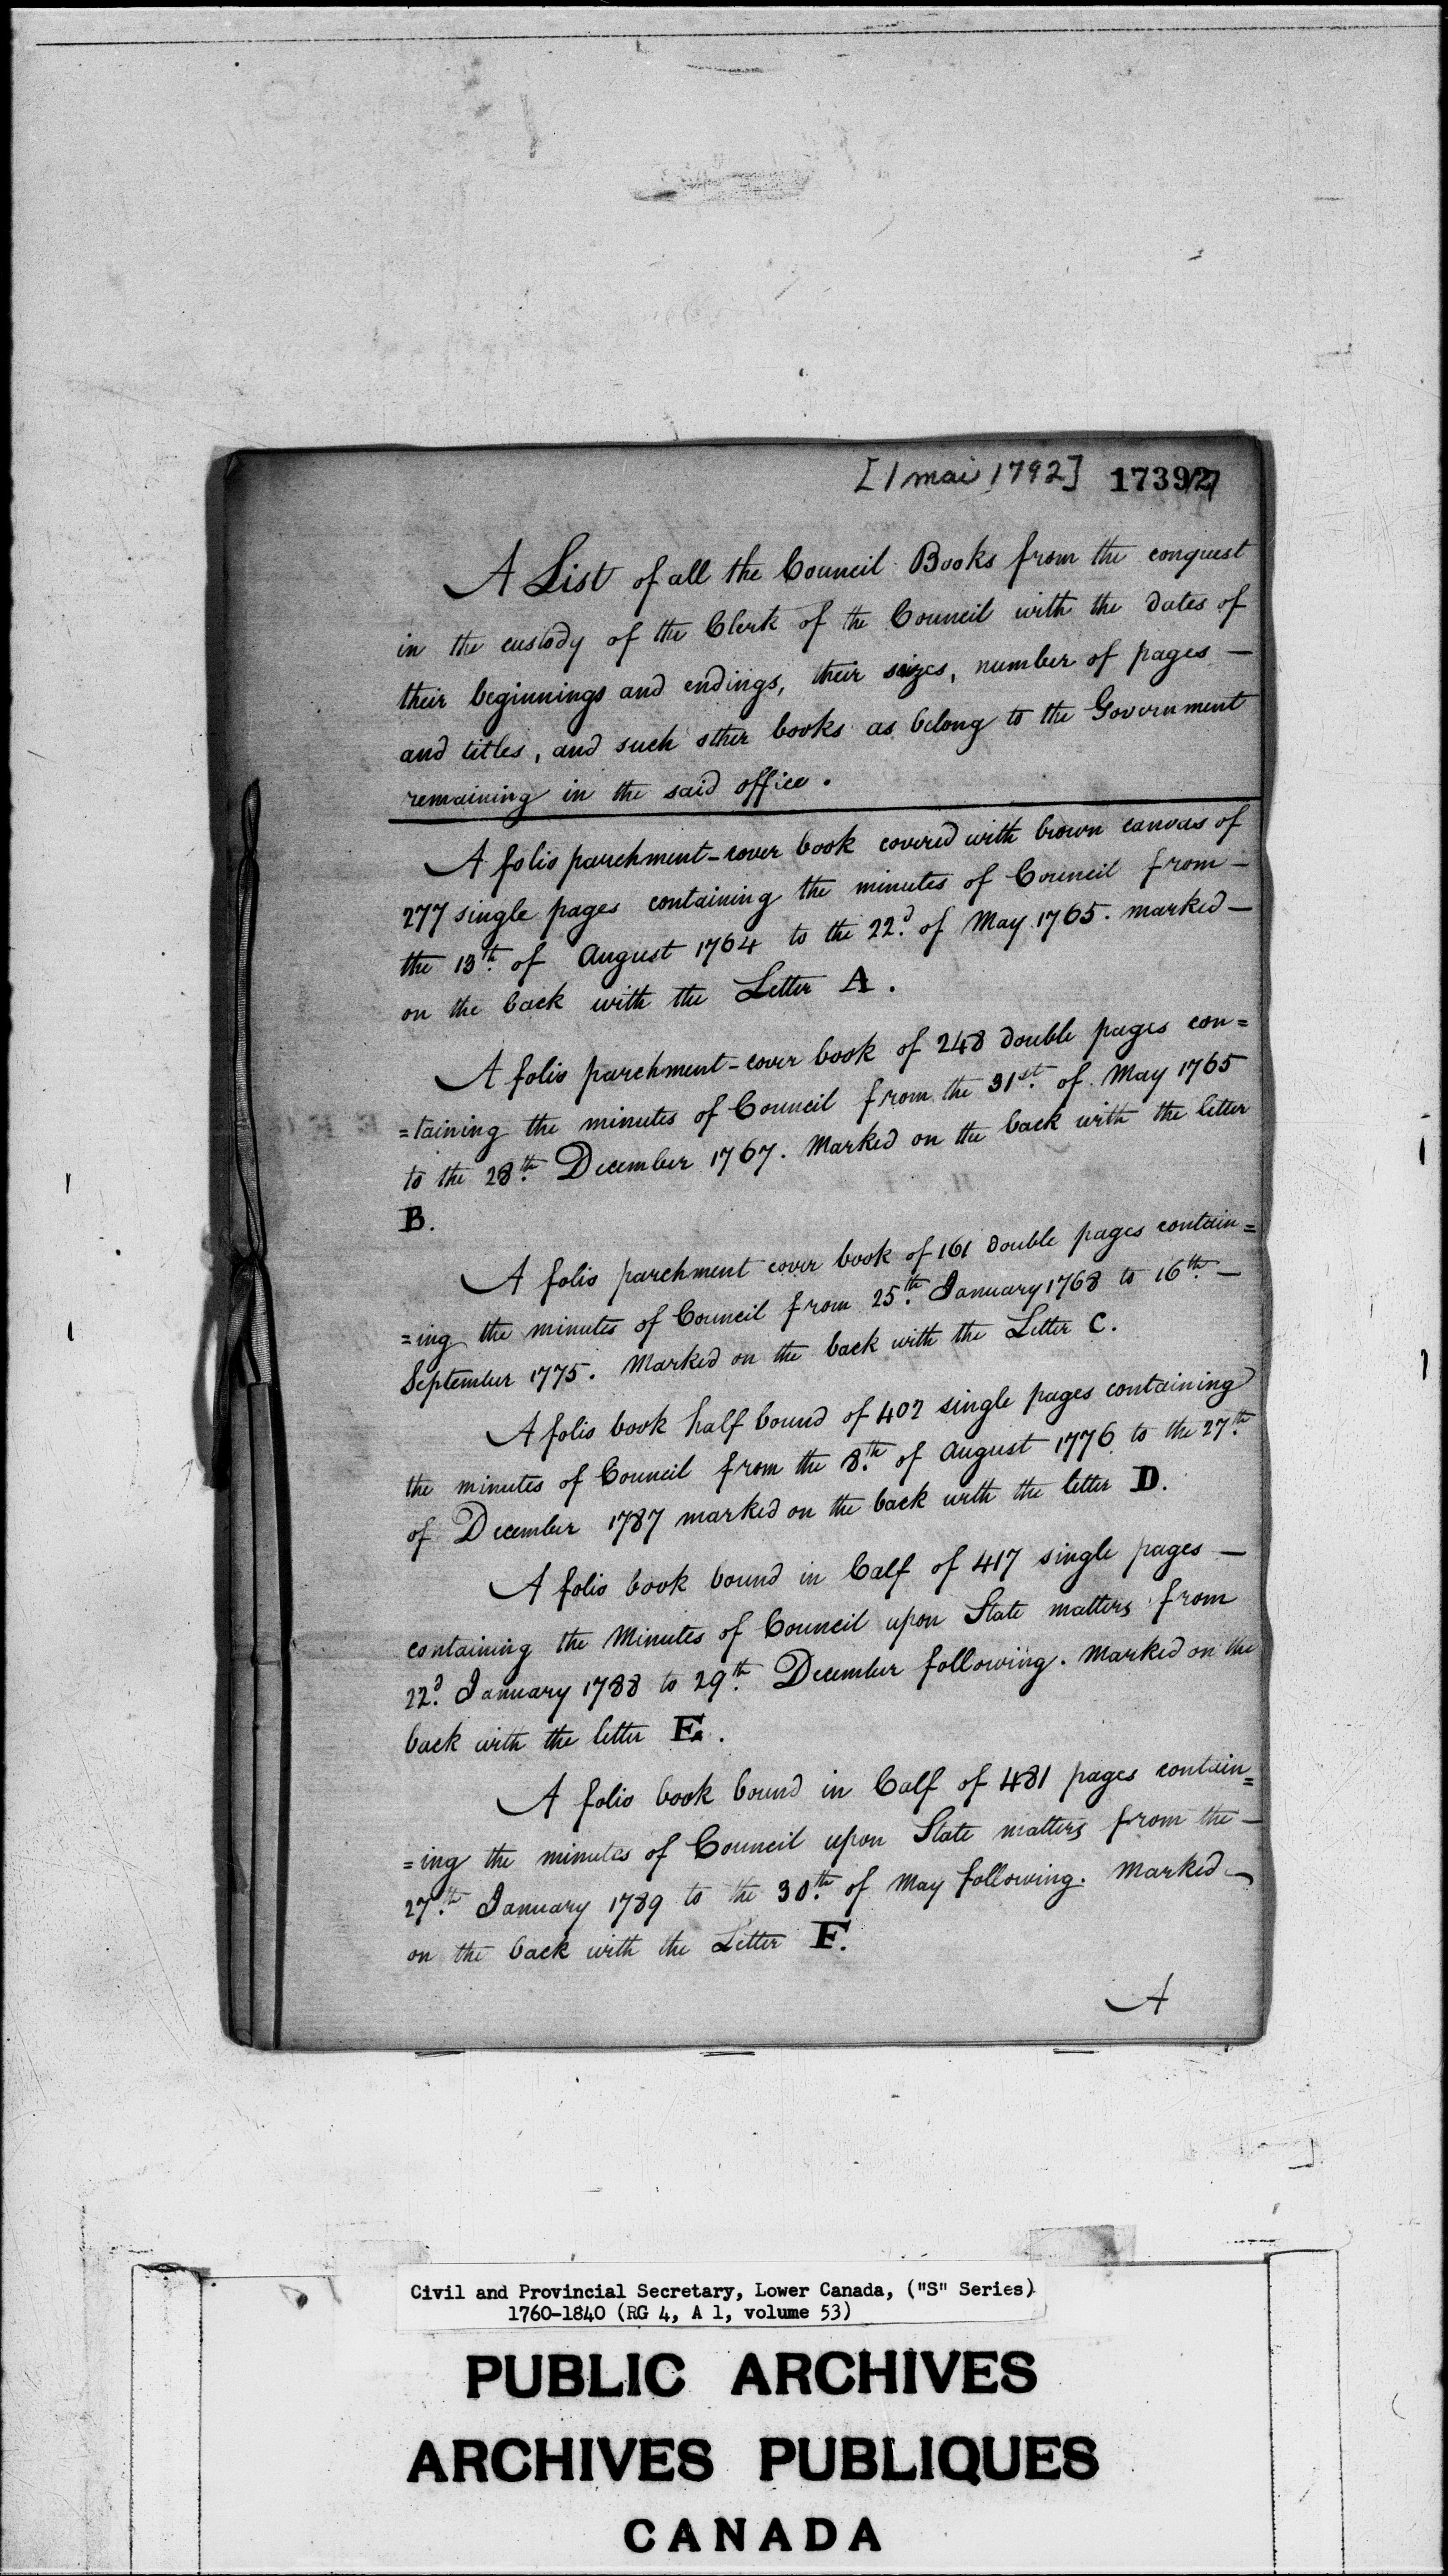 [1 mai 1792] 17392
A List of all the Council Books from the conquest
in the custody of the Clerk of the Council with the dates of
their beginnings and endings, their sizes, number of pages —
and titles, and such other books as belong to the Government
remaining in the said office.
A folio parchment-cover book covered with brown canvas of
277 single pages containing the minutes of Council from —
the 13th. of August 1764 to the 22d. of May 1765. marked —
on the back with the Letter A.
A folio parchment-cover book of 248 double pages con=
=taining the minutes of Council from the 31st. of May 1765
to the 28th. December 1767. Marked on the back with the letter
B.
A folio parchment cover book of 161 double pages contain=
=ing the minutes of Council from 25th. January 1768 to 16th. —
September 1775. Marked on the back with the Letter C.
A folio book half bound of 402 single pages containing
the minutes of Council from the 8th. of August 1776 to the 27th.
of December 1787 marked on the back with the letter D.
A folio book bound in Calf of 417 single pages —
containing the Minutes of Council upon State matters from
22d. January 1788 to 29th. December following. Marked on the
back with the letter E.
A folio book bound in Calf of 481 pages contain=
=ing the minutes of Council upon State matters from the —
27th. January 1789 to the 30th. of May following. Marked —
on the back with the Letter F.
A
Civil and Provincial Secretary, Lower Canada, ("S" Series)
1760-1840 (RG 4, A 1, volume 53)
PUBLIC ARCHIVES
ARCHIVES PUBLIQUES
CANADA